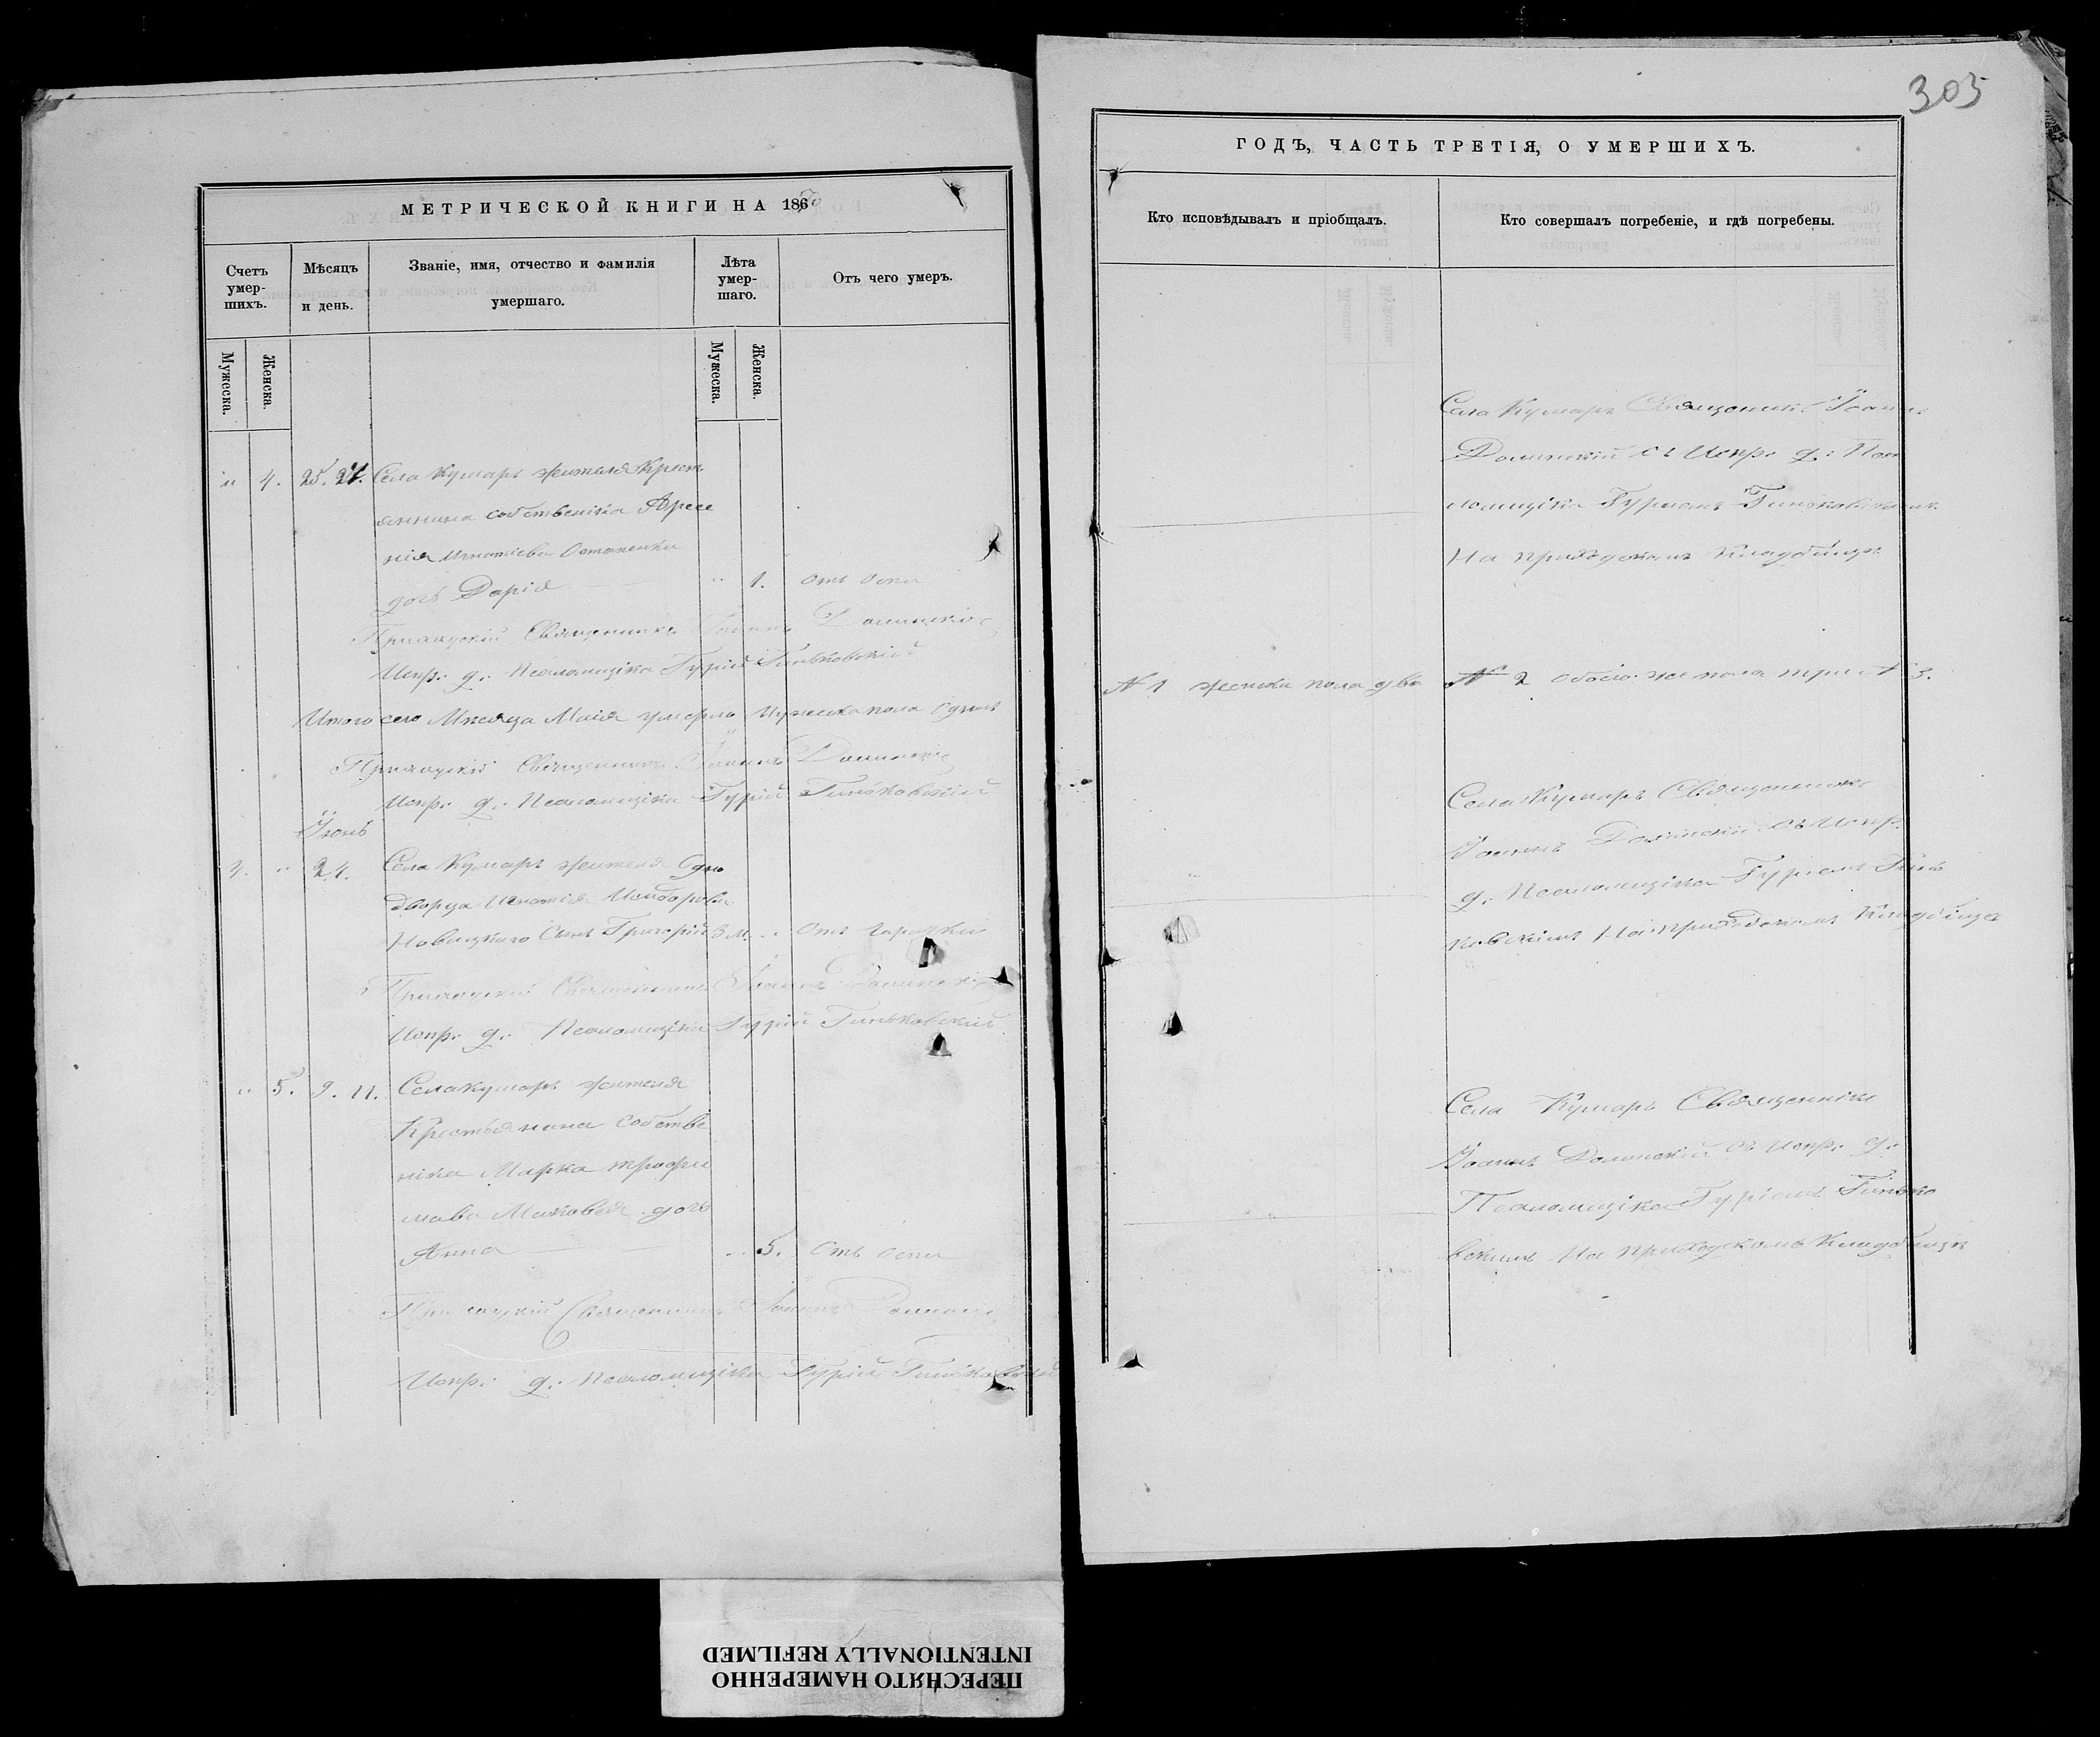 305
МЕТРИЧЕСКОЙ КНИГИ НА 186
Счетъ умер-шихъ.
Мѣсяцъ и день.
Званіе, имя, отчество и фамилія умершаго.
Лѣта умер-шаго.
Отъ чего умеръ.
Мужеска.
Женска.
Мужеска.
Женска.
" 4. 25. Села Кумаръ жителя Крест
янина собственіка
нія Игнатіева Остапенка
дочь Дарія " 1. отъ оспи
Приходскій Священникъ Іоаннъ Долинскій
Испр: д: Псаломщіка Гурій Гиньковскій
Итого сего Мнсяца Маія умерло Мужеска пола одинъ
Приходскій Священникъ Іоаннъ Долинскій
Испр: д: Псаломщіка Гурій Гиньковскій
Іюнь
" Села Кумаръ жителя Одно
дворца Игнатія
Новицкого Сынъ Григорій 3 м. " отъ горячки
Приходскій Священникъ Іоаннъ Долинскій
Испр: д: Псаломщіка Гурій Гиньковскій
" 5. 9. 11. Села Кумаръ жителя
Крестьянина собстве
ніка Марка трофи
мова дочь
Анна " 5. отъ оспи
Приходскій Священникъ Іоаннъ Долинскій
Испр: д: Псаломщіка Гурій Гиньковскій
ГОДЪ, ЧАСТЬ ТРЕТІЯ, О УМЕРШИХЪ.
Кто исповѣдывалъ и пріобщалъ.
Кто совершалъ погребеніе, и гдѣ погребены.
Села Кумаръ Священникъ Іоаннъ
Долинскій съ Испр: д: Пса
ломщіка Гуріемъ Гиньковскимъ
На приходскомъ Кладбищѣ
№ 1 женска пола два № 2 обоего же пола три № 3.
Села Кумаръ Священникъ
Іоаннъ Долинскій съ Испр.
д: Псаломщіка Гуріемъ Гинь
ковскимъ На приходскомъ Кладбищѣ
Села Кумаръ Священнікъ
Іоаннъ Долинскій съ Испр: д:
Псаломщіка Гуріемъ Гинько
вскимъ На приходскомъ Кладбищѣ
ПЕРЕСНЯТО НАМЕРЕННО
INTENTIONALLY REFILMED